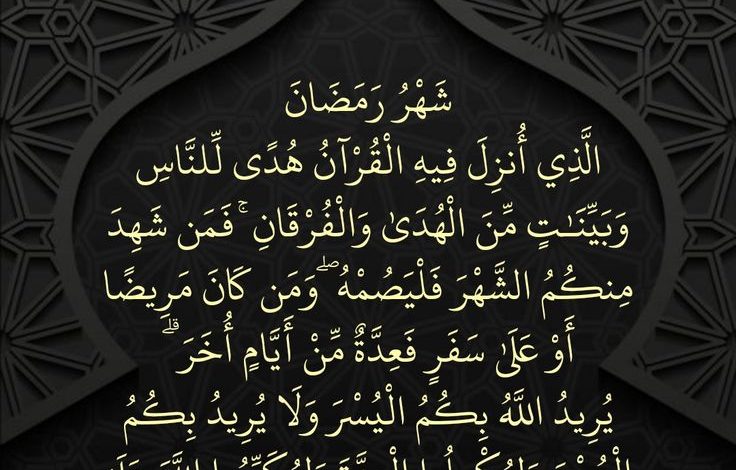 شَهْرُ رَمَضَانَ
الَّذِي أُنزِلَ فِيهِ الْقُرْآنُ هُدًى لِّلنَّاسِ
وَبَيِّنَـٰتٍ مِّنَ الْهُدَىٰ وَالْفُرْقَانِ ۚ فَمَن شَهِدَ
مِنكُمُ الشَّهْرَ فَلْيَصُمْهُ ۖ وَمَن كَانَ مَرِيضًا
أَوْ عَلَىٰ سَفَرٍ فَعِدَّةٌ مِّنْ أَيَّامٍ أُخَرَ ۗ
يُرِيدُ اللَّهُ بِكُمُ الْيُسْرَ وَلَا يُرِيدُ بِكُمُ